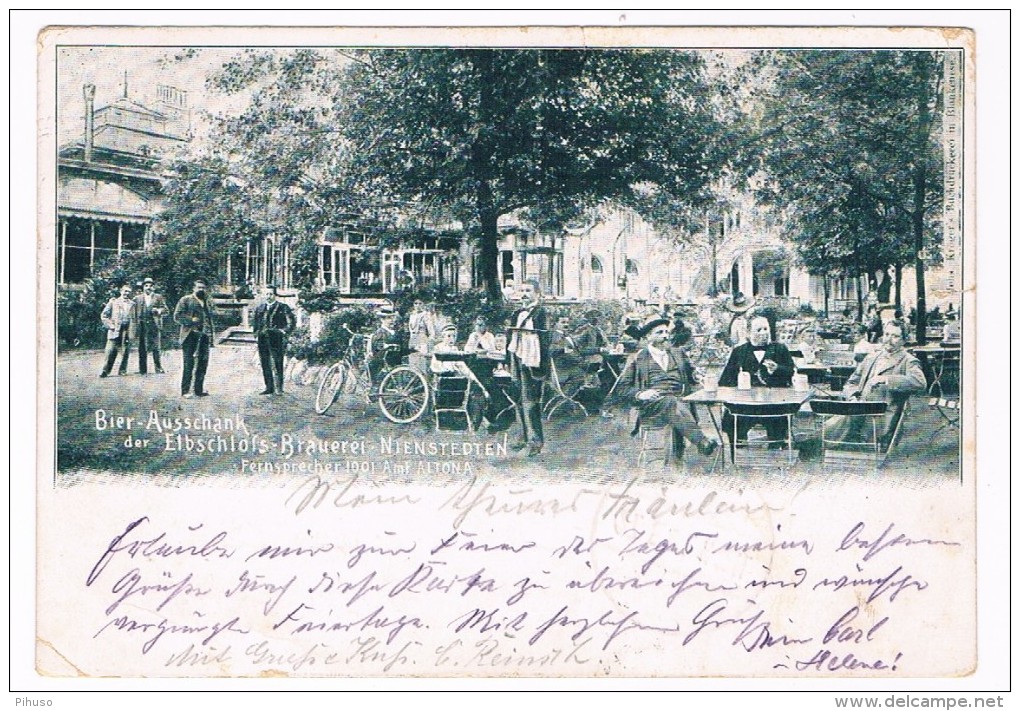 Bier-Ausschank
der Elbschloſs-Brauerei-NIENSTEDTEN
Fernsprecher 1901 Amt ALTONA
Mein theures Fräulein!
Erlaube mir zur Feier des Tages meine besten
Grüße durch diese Karte zu übereichen und wünsche
vergnügte Feiertage. Mit herzlichem Gruß Dein Carl
u Helene!
Mit Gruß
Pihuso
www.delcampe.net